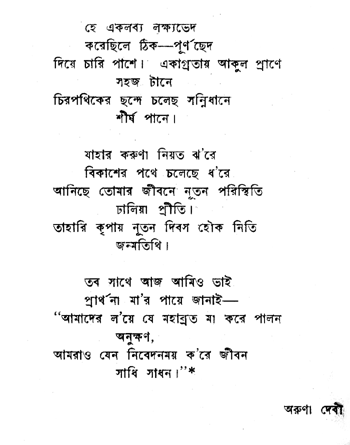 হে একলব্য লক্ষ্যভেদ
করেছিলে ঠিক—পূর্ণছেদ
দিয়ে চারি পাশে। একাগ্রতায় আকুল প্রাণে
সহজ টানে
চিরপথিকের ছন্দে চলেছ সন্নিধানে
শীর্ষ পানে।
যাহার করুণা নিয়ত ঝ'রে
বিকাশের পথে চলেছে ধ'রে
আনিছে তোমার জীবনে নূতন পরিস্থিতি
ঢালিয়া প্রীতি।
তাহারি কৃপায় নূতন দিবস হৌক নিতি
জন্মতিথি।
তব সাথে আজ আমিও ভাই
প্রার্থনা মা'র পায়ে জানাই—
“আমাদের ল'য়ে যে মহাব্রত মা করে পালন
অনুক্ষণ,
আমরাও যেন নিবেদনময় ক'রে জীবন
সাধি সাধন।”*
অরুণা দেবী